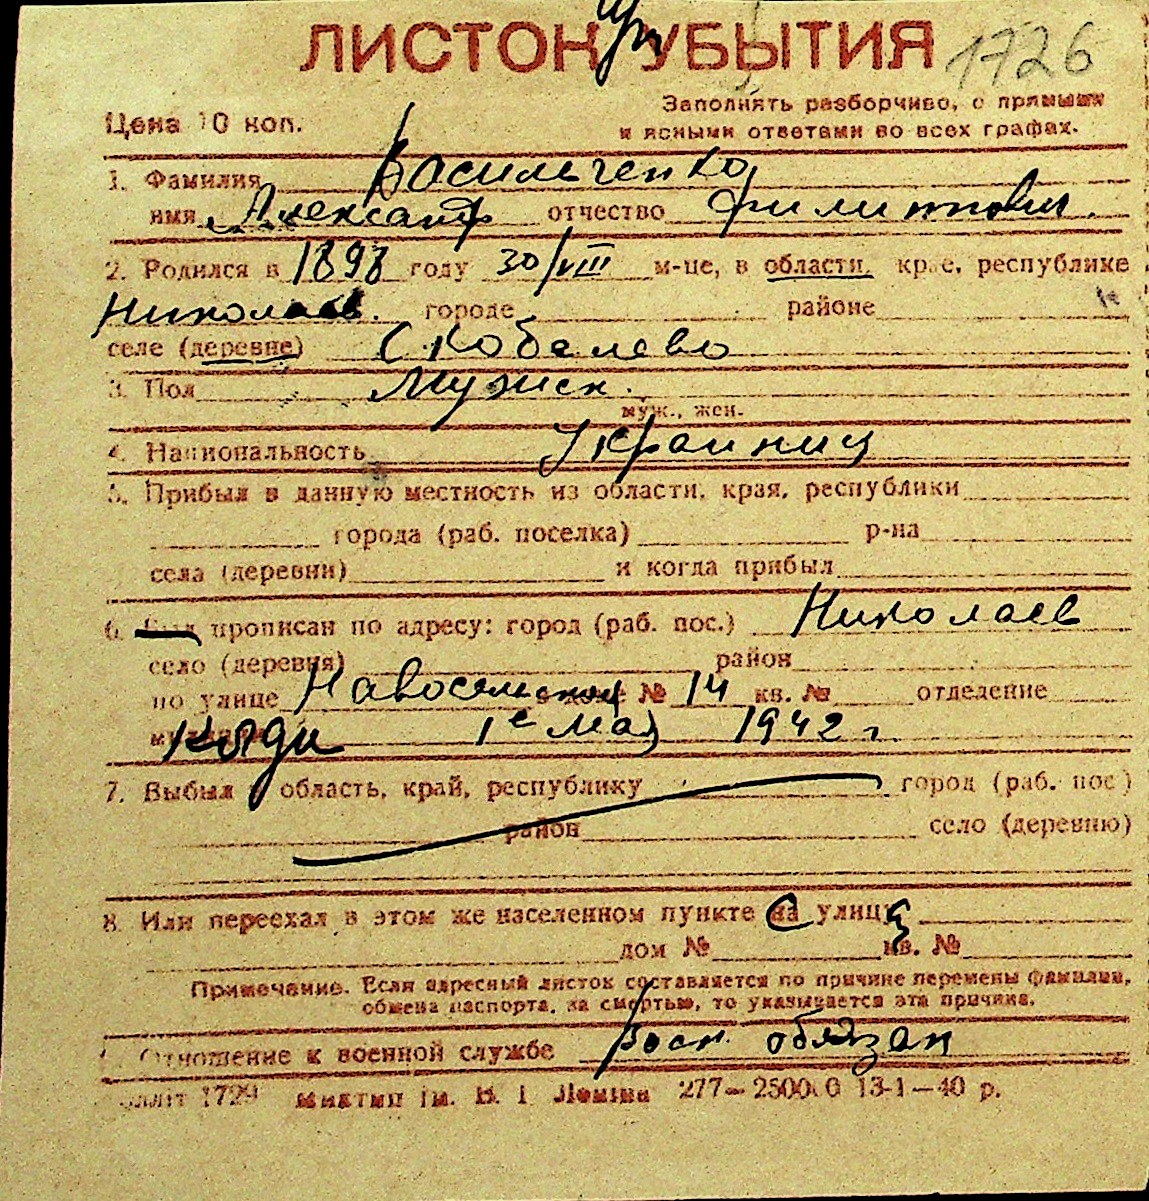 ЛИСТОК УБЫТИЯ
1726
Цена 10 коп.
Заполнять разборчиво, с прямыми
и ясными ответами во всех графах.
1. Фамилия Васильченко
имя Александр отчество Филиппович.
2. Родился в 1898 году 30/VIII м-це, в области, крае, республике
Николаев. городе районе
селе (деревне) Скобелево
3. Пол Мужск.
муж., жен.
4. Национальность Украинец
5. Прибыл в данную местность из области, края, республики
города (раб. поселка) р-на
села (деревни) и когда прибыл
6. Был прописан по адресу: город (раб. пос.) Николаев
село (деревня) район
по улице доме № 14 кв. № отделение
1е Мая 1942 г.
7. Выбыл область, край, республику город (раб. пос.)
район село (деревню)
8. Или переехал в этом же населенном пункте на улицу
дом № кв. №
Примечание. Если адресный листок составляется по причине перемены фамилии,
обмена паспорта, за смертью, то указывается эта причина.
Отношение к военной службе Воен. обязан
1729 им. В. І. Леніна 277—250000 13-1—40 р.